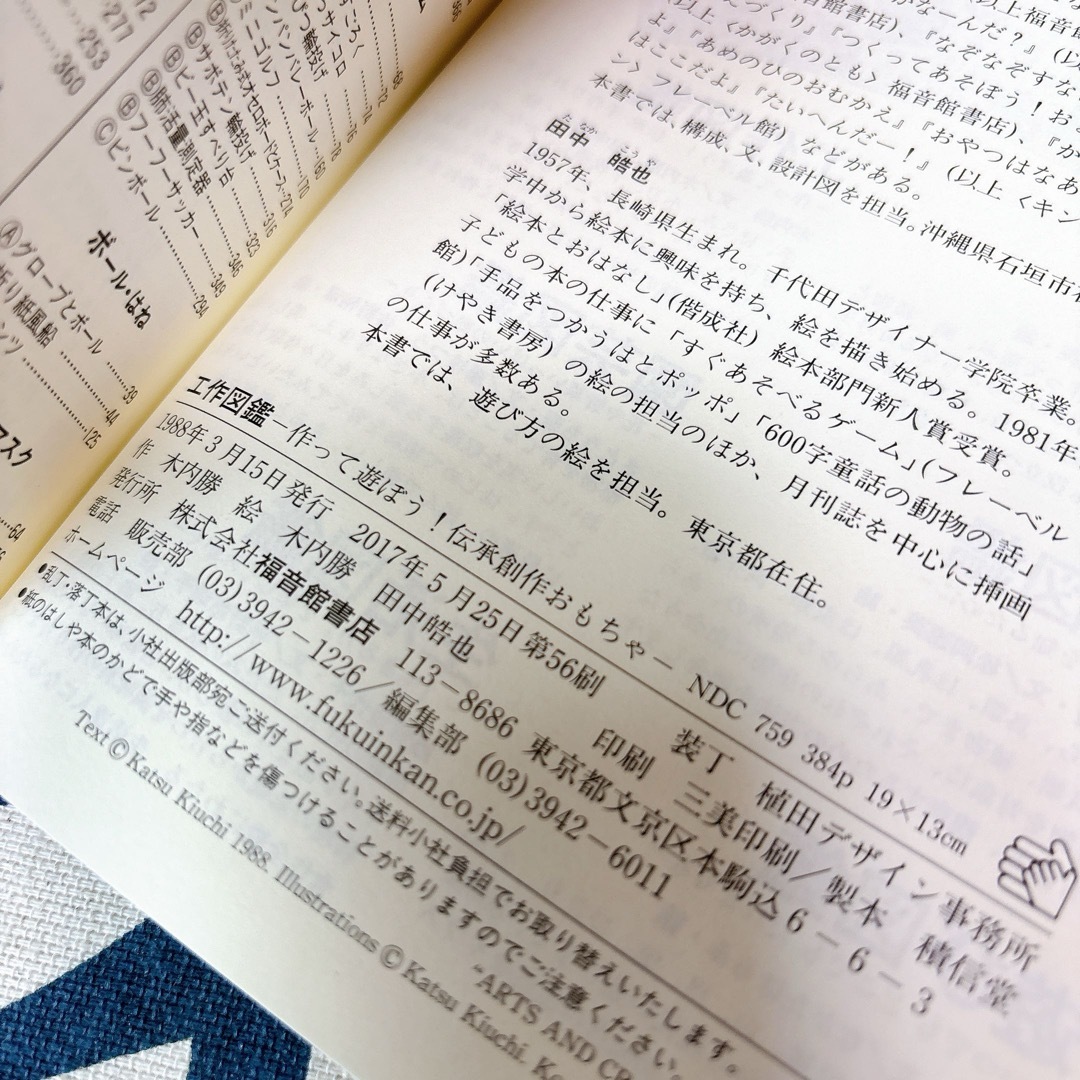 253
360
すごろく
つサイコロ
72
ぴつ輪投げ
74
ンバンバレーボール
76
ミニゴルフ
169
170
Ⓑサボテン輪投げ
214
Ⓑビー玉すべり台
316
Ⓑ肺活量測定器
322
Ⓑフーフーサッカー
346
349
Ⓒピンボール
294
ボール・はね
Ⓐグローブとボール
39
折り紙風船
44
125
マスク
64
以上福音館
がなーんだ?』
えづくり』『つくってあそぼう!お
なぞなぞすな
よ』『あめのひのおむかえ』『おやつはなあ
はここだよ』『たいへんだー!』(以上〈キン
ン〉フレーベル館)などがある。
本書では、構成、文、設計図を担当。沖縄県石垣市
田中 皓也
1957年、長崎県生まれ。千代田デザイナー学院卒業。
学中から絵本に興味を持ち、絵を描き始める。1981年
「絵本とおはなし」(偕成社)絵本部門新人賞受賞。
子どもの本の仕事に「すぐあそべるゲーム」(フレーベル
館)「手品をつかうはとポッポ」「600字童話の動物の話」
(けやき書房)の絵の担当のほか、月刊誌を中心に挿画
の仕事が多数ある。
本書では、遊び方の絵を担当。東京都在住。
工作図鑑―作って遊ぼう!伝承創作おもちゃ― NDC 759 384p 19×13cm
1988年3月15日発行 2017年5月25日第56刷
作 木内勝 絵 木内勝 田中皓也 装丁 植田デザイン事務所
発行所 株式会社福音館書店 印刷 三美印刷/製本 積信堂
113-8686 東京都文京区本駒込6-6-3
電話 販売部 (03)3942-1226/編集部 (03)3942-6011
ホームページ http://www.fukuinkan.co.jp/
●乱丁・落丁本は、小社出版部宛ご送付ください。送料小社負担でお取り替えいたします。
●紙のはしや本のかどで手や指などを傷つけることがありますのでご注意ください。
"ARTS AND CR
Text © Katsu Kiuchi 1988 Illustrations © Katsu Kiuchi, Ko